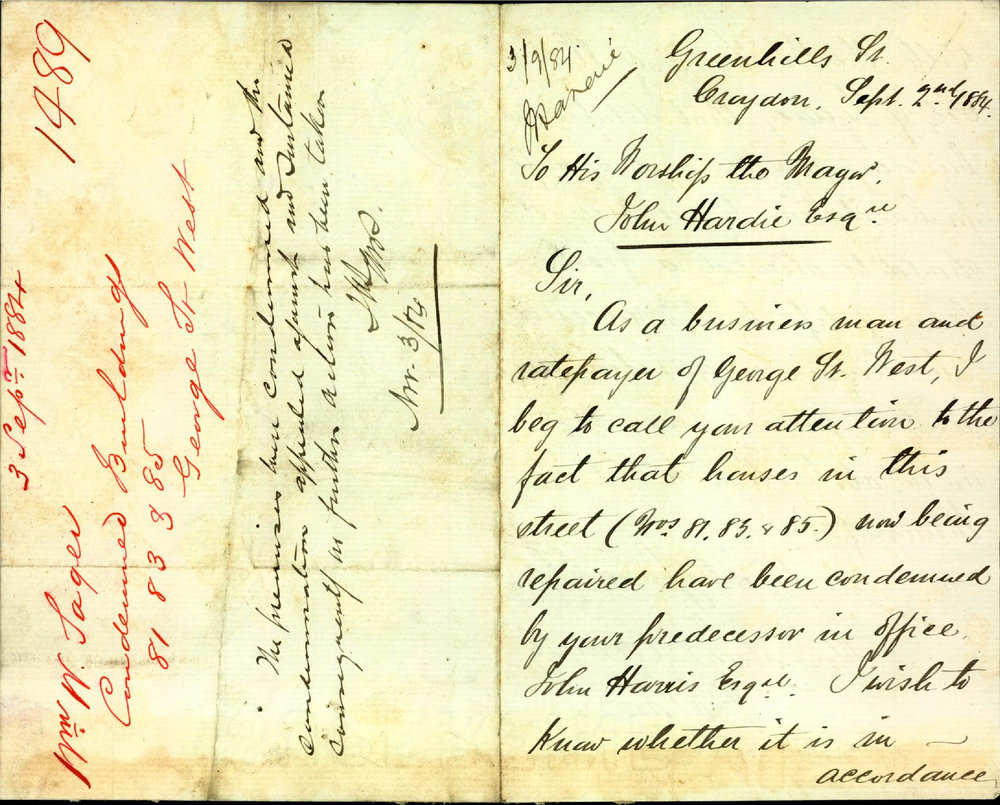 1489
3 Sepr. 1884
Wm W. Sager
Condemned Buildings
81 83 & 85
George St West
The premises were condemned and the
condemnation appealed against and sustained
consequently no further action has been taken
Nov. 3/84
3/9/84.
JHardie
Greenhills St.
Croydon, Sept. 2nd 1884.
To His Worship the Mayor,
John Hardie Esqre
Sir,
As a business man and
ratepayer of George St. West, I
beg to call your attention to the
fact that houses in this
street (Nos. 81, 83, & 85.) now being
repaired have been condemned
by your predecessor in office
John Harris Esqre. I wish to
know whether it is in
accordance